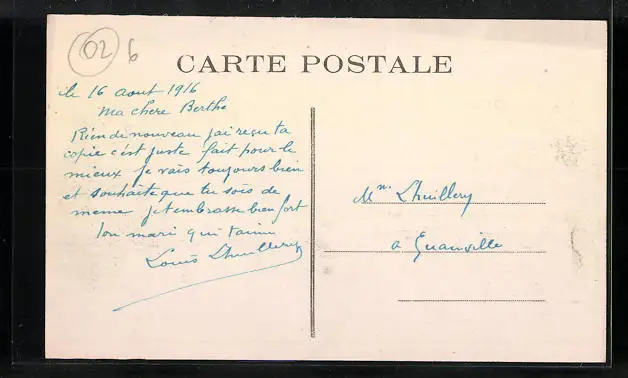 02 b
CARTE POSTALE
le 16 aout 1916
Ma chere Berthe
Rien de nouveau j'ai reçu ta
copie c'est juste fait pour le
mieux je vais toujours bien
et souhaite que tu sois de
meme je t'embrasse bien fort
ton mari qui t'aime
Louis Lhuillery
Mme Lhuillery
a Guainville